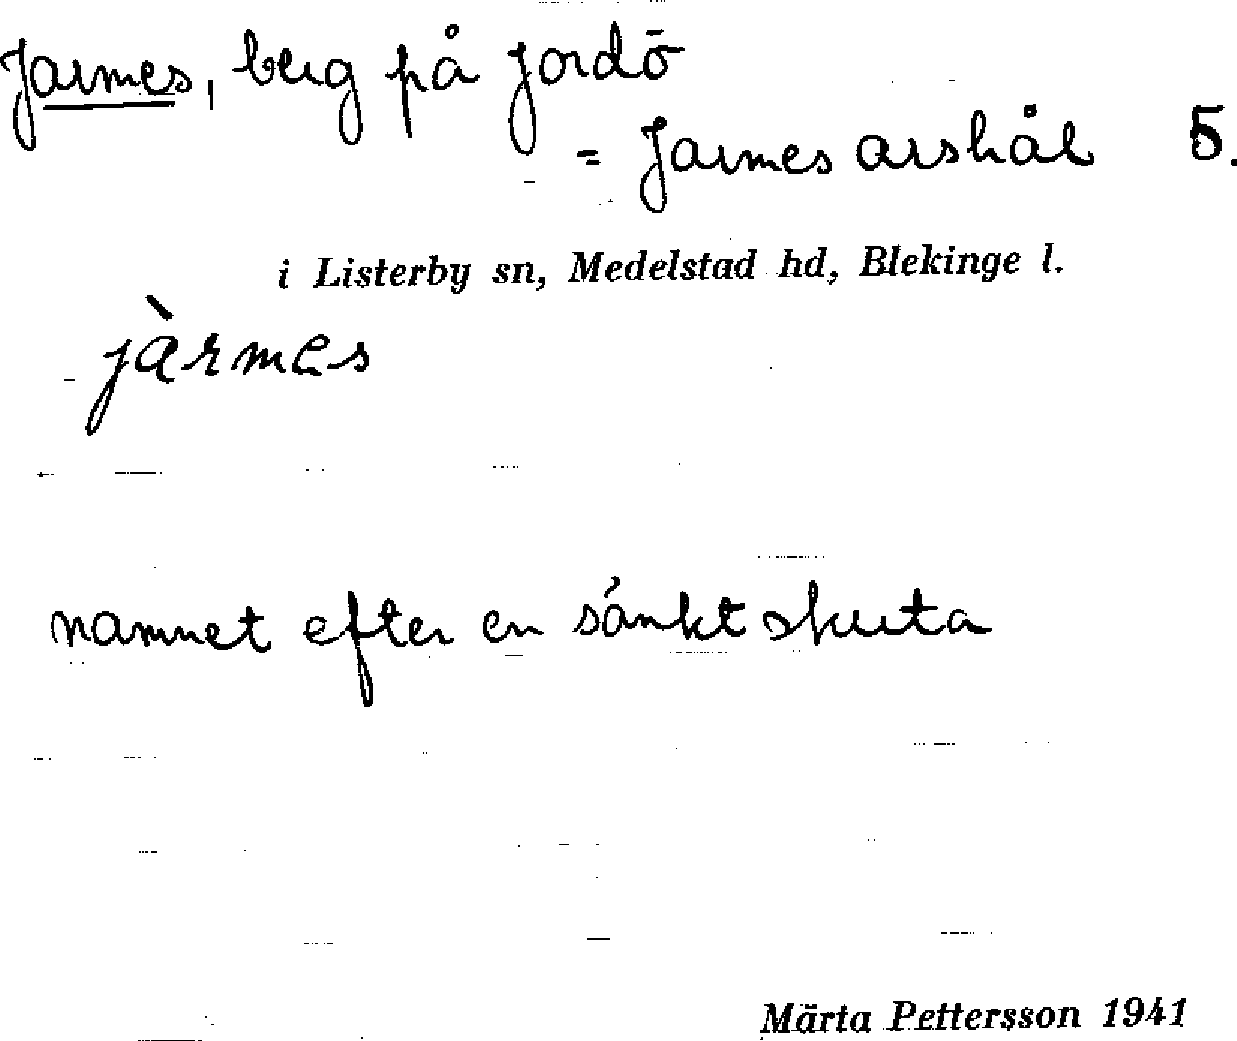 Jarmes, berg på Jordö
= Jarmes arshål 5.
i Listerby sn, Medelstad hd, Blekinge l.
jàrmes
namnet efter en sänkt skuta
Märta Pettersson 1941